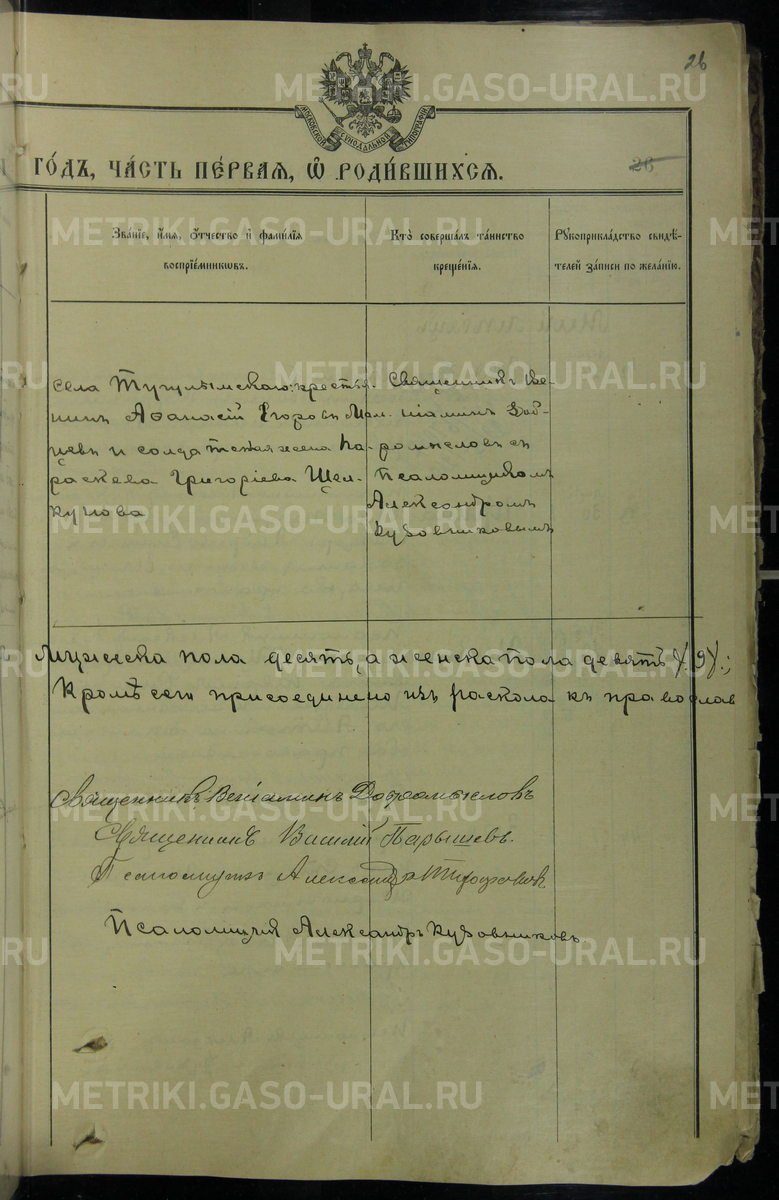 26
МОСКОВСКОЙ СѴНОДАЛЬНОЙ ТИПОГРАФІИ
ГО́ДЪ, ЧА́СТЬ ПЕ́РВАЯ, Ѽ РОДИ́ВШИХСЯ.
26
Зва́нїе, и҆́мя, ѻ҆́тчество и҆ фами́лїя
воспрїе́мниковъ.
Кто̀ соверша́лъ та́инство
креще́нїя.
Рꙋкоприкла́дство свидѣ́-
телей за́писи по жела́нїю.
Села Тугулымскаго: кресть-
нинъ Аѳанасій Егоровъ
и солдатская жена Па-
раскева Григоріева Щел-
кунова
Священникъ Ве-
ніаминъ Доб-
ромысловъ съ
Псаломщикомъ
Александромъ
Кузовниковымъ
Мужеска пола десять, а женска пола девять /9/.;
Кромѣ сего присоединено изъ раскола къ православ
Священникъ Веніаминъ Добромысловъ
Священникъ Василій Парышевъ.
Псаломщикъ Александръ
Псаломщикъ Александръ Кузовниковъ
METRIKI.GASO-URAL.RU